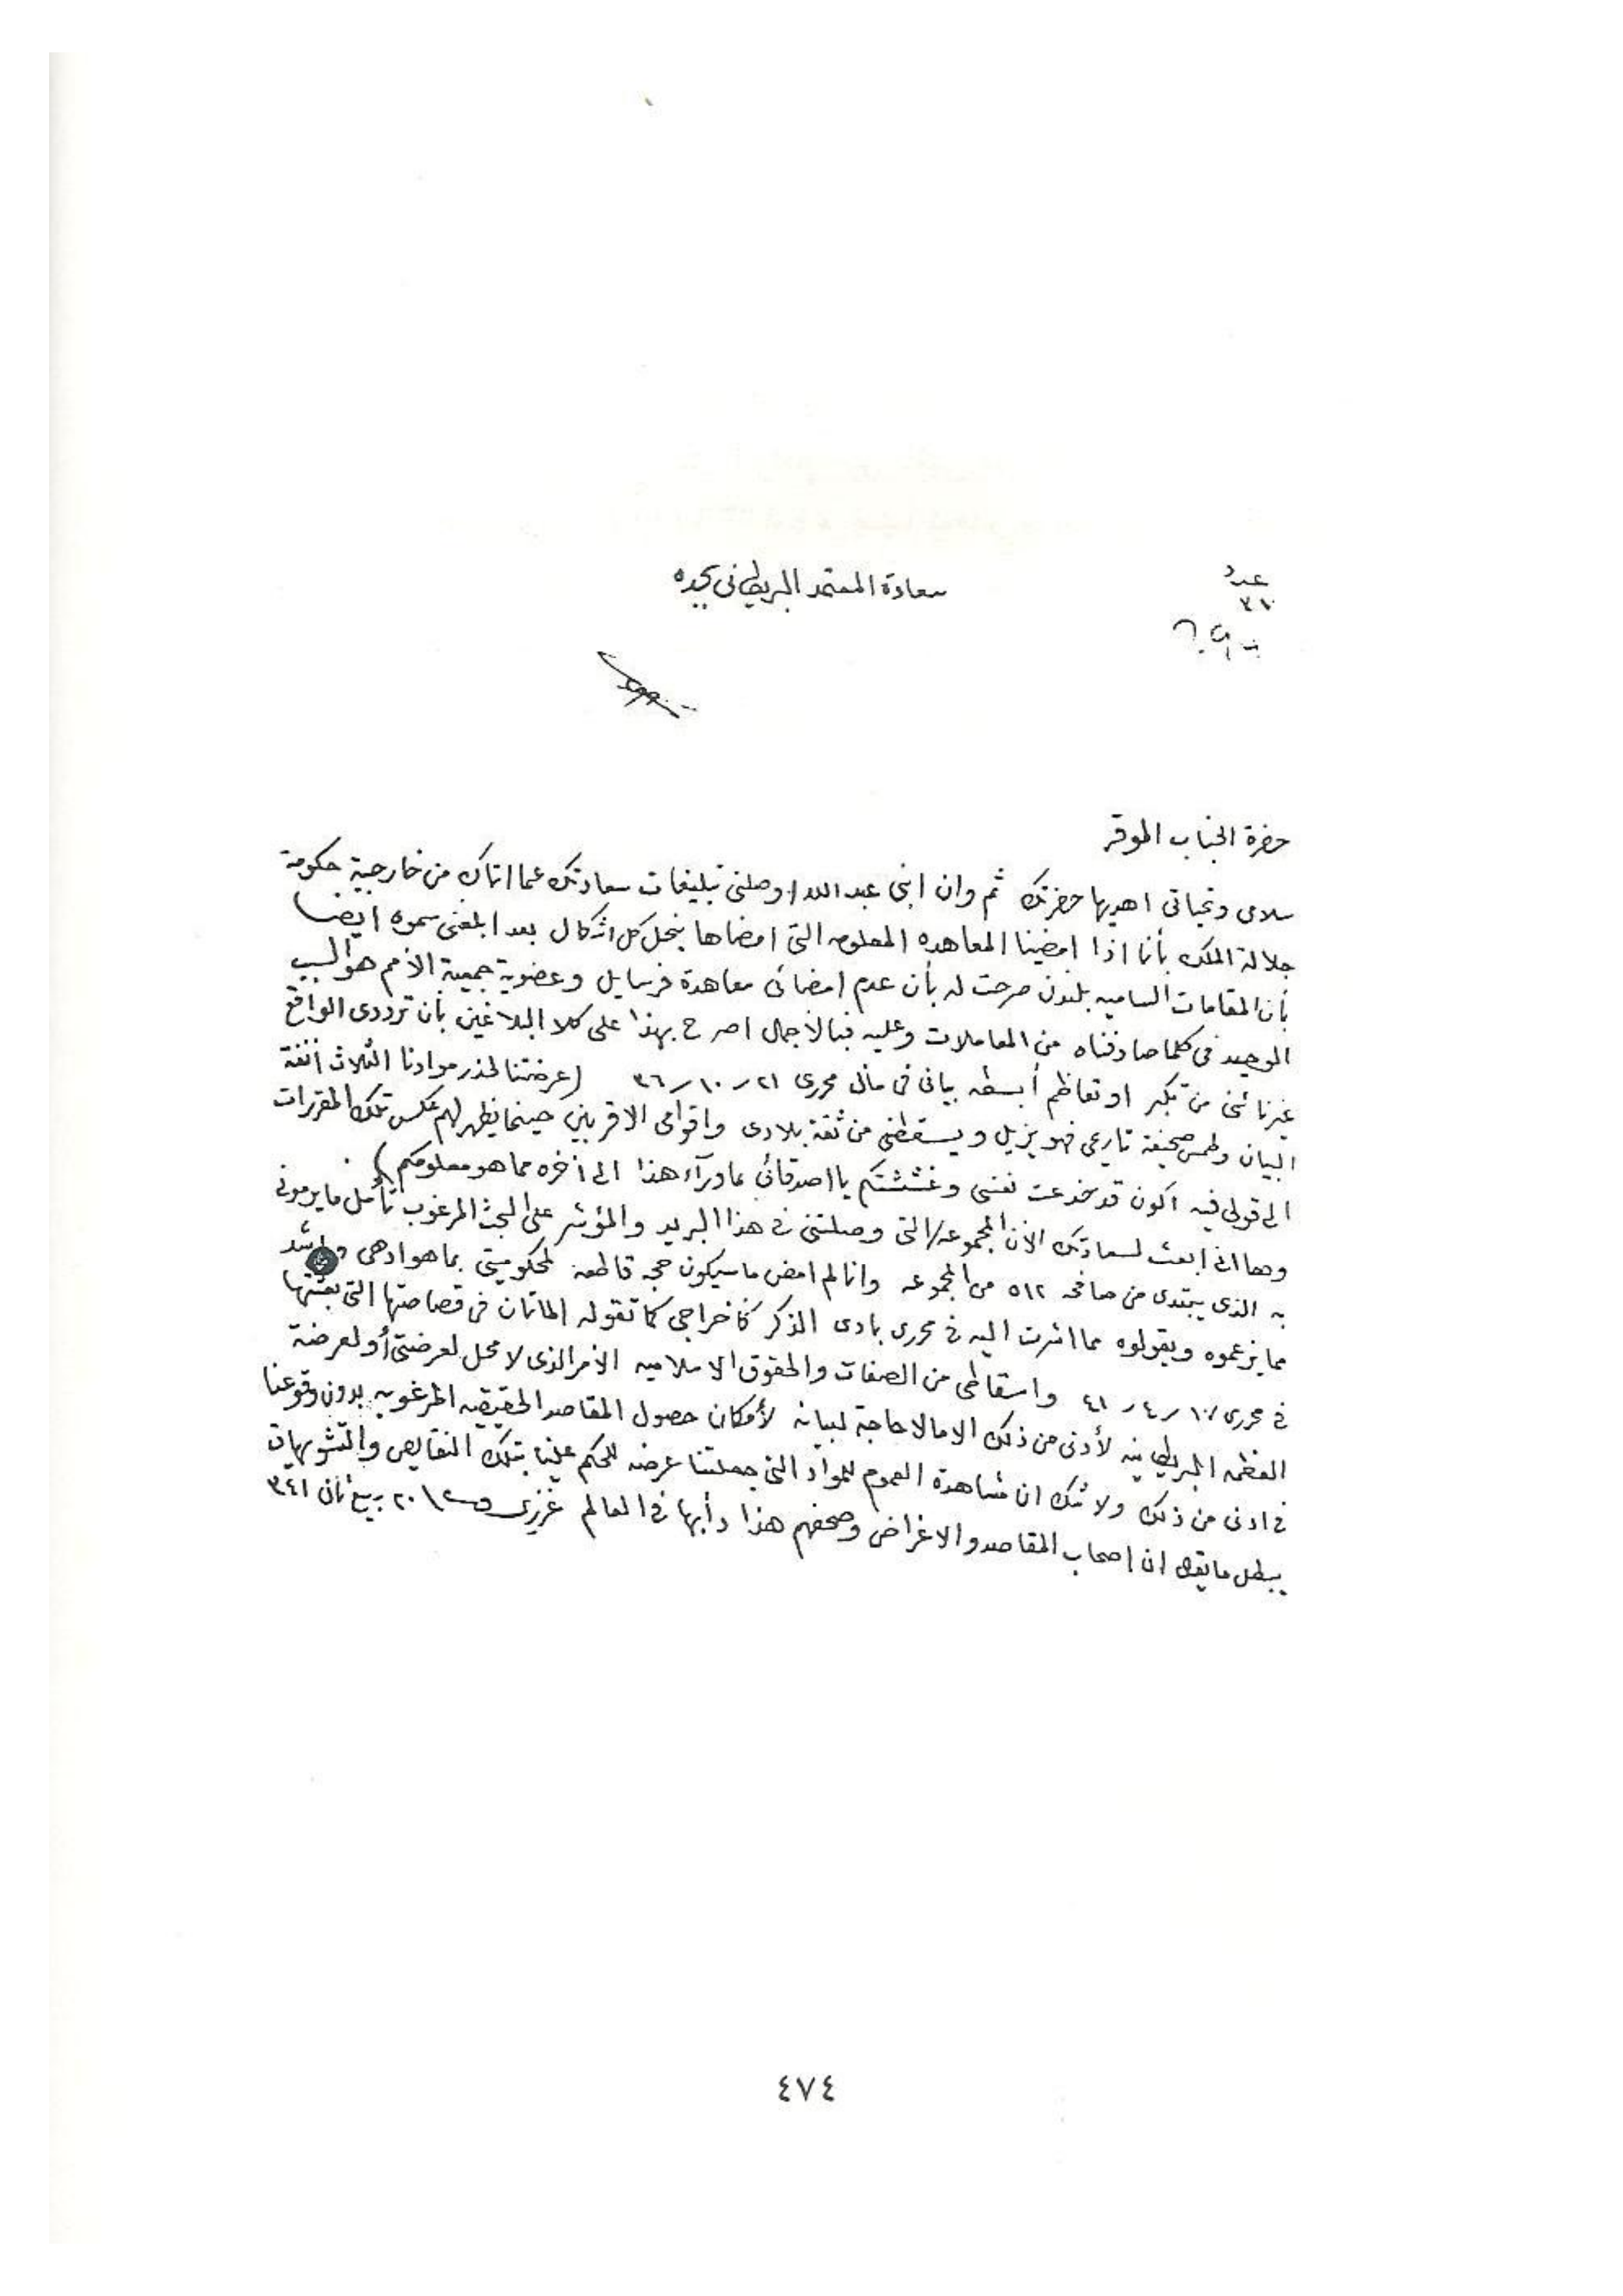 عدد
٣١٠
سعادة المعتمد البريطانى بجده
حضرة الجناب الموقر
سلامى وتحياتى اهديها حضرتك ثم وان ابنى عبد الله اوصلنى تبليغات سعادتك عما اتاك من خارجية حكومة
جلالة الملك بأنا اذا امضينا المعاهده المعلومه التى امضاها ينحل كل اشكال بعد ابلغنى سموه ايضا
بأن المقامات الساميه بلندن صرحت له بأن عدم امضائى معاهدة فرسايل وعضوية جمعية الأمم هو السبب
الوحيد فى كلما صادفناه من المعاملات وعليه فبالأجمال اصرح بهذا على كلا البلاغين بأن ترددى الواقع
غير ناشئ من تكبر او تعاظم أبسطه بيانى فى مآل محررى ٢١ ر ١٠ ر ٣٦ (عرضتنا لحذر موادنا الثلاث آنفة
البيان وطمس صحيفة تاريخى فهو يزيل ويسقطنى من ثقة بلادى واقوامى الاقربين حينما يظهر لهم عكس تلك المقررات
الى قولى فيه اكون قد خدعت نفسى وغششتكم يا اصدقائى عما ورآء هذا الى آخره مما هو معلومكم) .
وها انى ابعث لسعادتك الآن المجموعه التى وصلتنى فى هذا البريد والمؤشر على البحث المرغوب تأمل ما يرمونى
به الذى يبتدى من صافحه ٥١٢ من المجموعه وانا لم امض ما سيكون حجه قاطعه لمحكوميتى بما هو ادهى واشد
مما يزعموه ويقولوه مما اشرت اليه فى محررى بادى الذكر كأخراجى كما تقوله الماتان فى قصاصتها التى بعثتها
فى محررى ١٠ ر ٤ ر ٤١ واسقاطى من الصفات والحقوق الاسلاميه الأمر الذى لا محل لعرضتى أو لعرضة
العظمه البريطانيه لأدنى من ذلك الامالا حاجة لبيانه لأمكان حصول المقاصد الحقيقيه المرغوبه بدون وقوعنا
فى ادنى من ذلك ولا شك ان مشاهدة العموم للمواد التى جعلتنا عرضه للحكم علينا بتلك النقايص والتشويهات
يبطل ما يقال ان اصحاب المقاصد والاغراض وصحفهم هذا دأبها فى العالم عزيزى ٢٠ ربيع ثانى ٣٤١
٤٧٤